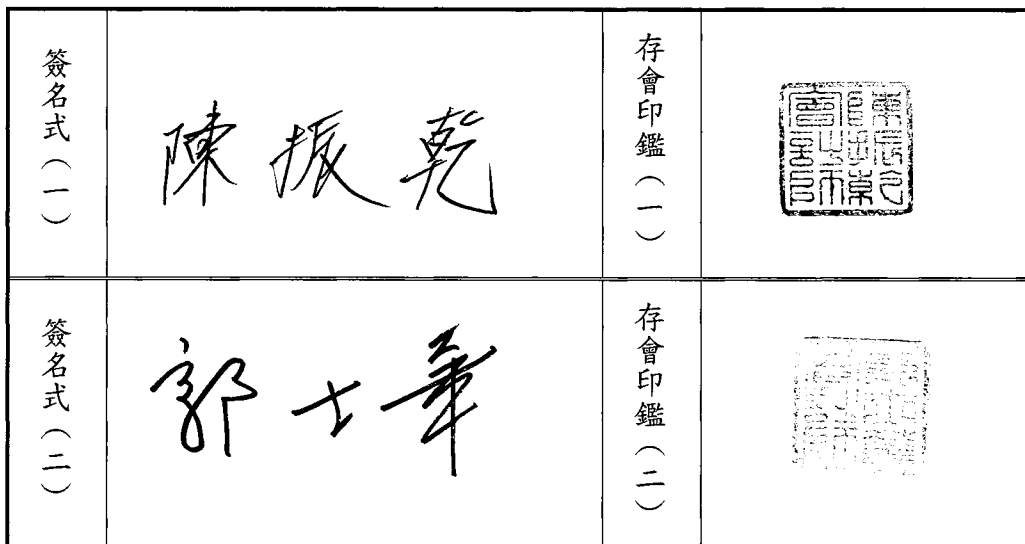 簽名式（一）
陳振乾
存會印鑑（一）
簽名式（二）
郭士華
存會印鑑（二）